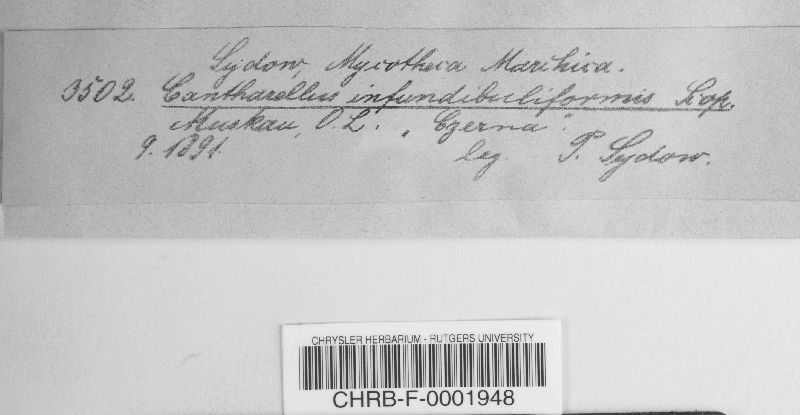 Sydow, Mycotheca Marchica.
3502. Cantharellus infundibuliformis Scop.
Muskau, O.L. „Czerna".
9.1891. leg. P. Sydow.
CHRYSLER HERBARIUM - RUTGERS UNIVERSITY
CHRB-F-0001948